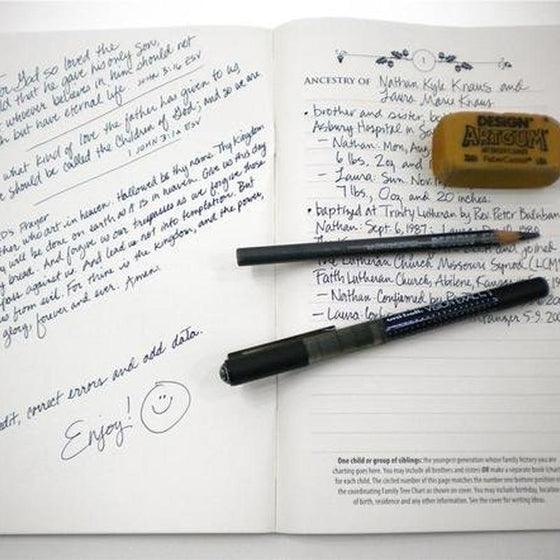 or God so loved the
ld that he gave his only Son,
t whoever believes in him should not
h but have eternal life
JOHN 3:16 ESV
what kind of love the father has given to us
e should be called the children of God; and so we are
1 JOHN 3:1a ESV
Prayer
ther who art in heaven. Hallowed be thy name. Thy Kingdom
will be done on earth as it is in heaven. Give us this day
bread. And forgive us our trespasses as we forgive those
against us. And lead us not into temptation. But
us from evil. For thine is the kingdom, and the power,
glory, forever and ever. Amen.
edit, correct errors and add data.
Enjoy!
1
ANCESTRY OF Nathan Kyle Kraus and
Laura Marie Kraus
• brother and sister, b
Asbury Hospital in
– Nathan: Mon, Aug
6 lbs, 2oz, and
– Laura: Sun. Nov.
7 lbs, 0oz, and 20 inches.
• baptized at Trinity Lutheran by Rev. Peter
Nathan: Sept. 6, 1987;
The Lutheran Church Missouri Synod (LCMS
Faith Lutheran Church, Abilene,
– Nathan Confirmed by
– Laura 5-9.200
DESIGN
ARTGUM
FaberCastell
One child or group of siblings: the youngest generation whose family history you are
charting goes here. You may include all brothers and sisters OR make a separate book
for each child. The circled number of this page matches the number one bottom position
the coordinating Family Tree Chart as shown on cover. You may include birthday, location
of birth, residence and any other information. See the cover for writing ideas.